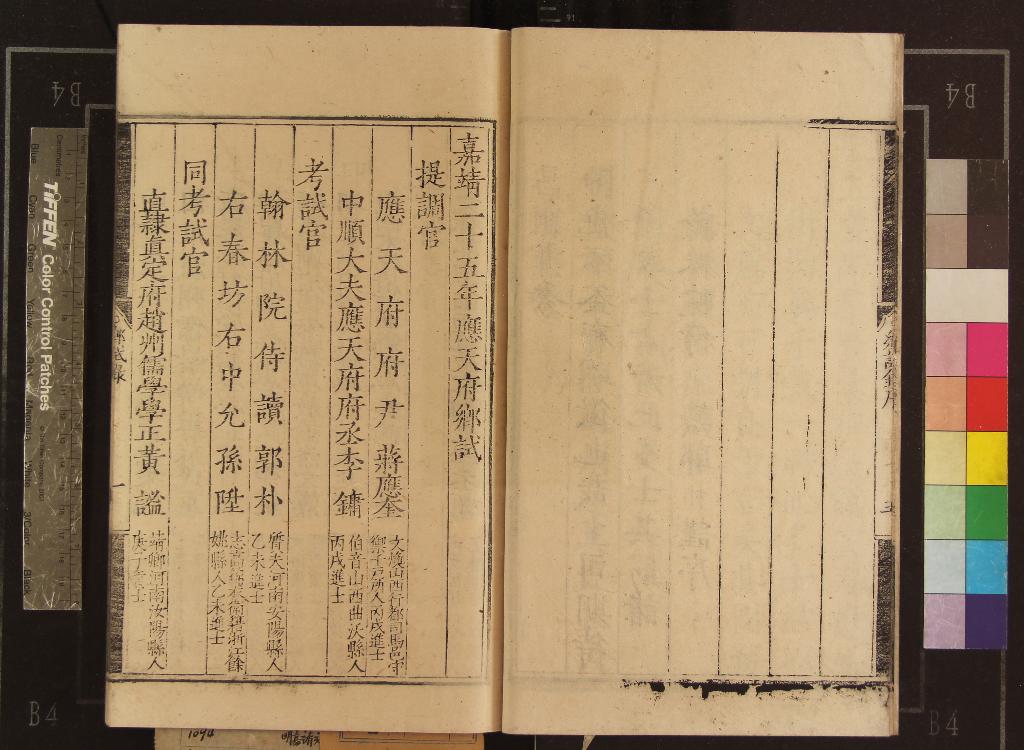 嘉靖二十五年應天府鄉試
提調官
應天府府尹蔣應奎
文煥山西行都司馬邑守
禦千戶所人丙戌進士
中順大夫應天府府丞李鏞
伯音山西曲沃縣人
丙戌進士
考試官
翰林院侍讀郭朴
質夫河南安陽縣人
乙未進士
右春坊右中允孫陞
志高 浙江餘
姚縣人乙未進士
同考試官
直隸真定府趙州儒學學正黃謐
靖卿河南汝陽縣人
貢士
鄉試錄
一
五
B4
B4
B4
B4
TIFFEN Color Control Patches
Centimetres
Blue
Cyan
Green
Yellow
Red
Magenta
3/Color
Black
1694